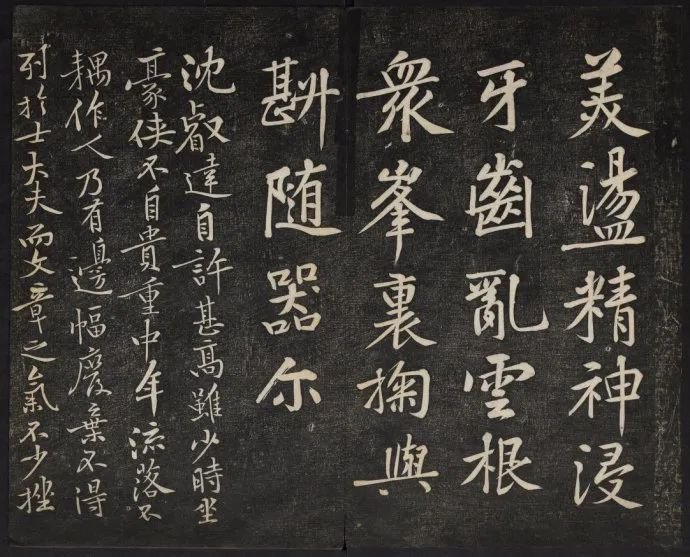 美盪精神浸
牙齒亂雲根
衆峯裏掬與
斟随器尓
沈叡達自許甚髙雖少時坐
豪俠不自貴重中年流落不
耦作人乃有邊幅廢棄不得
列於士大夫而文章之氣不少挫